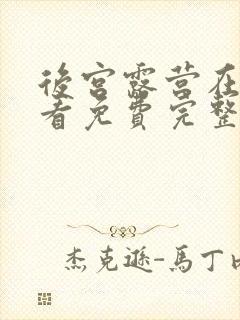 後宮露营在
看免費完整
杰克遜-馬丁